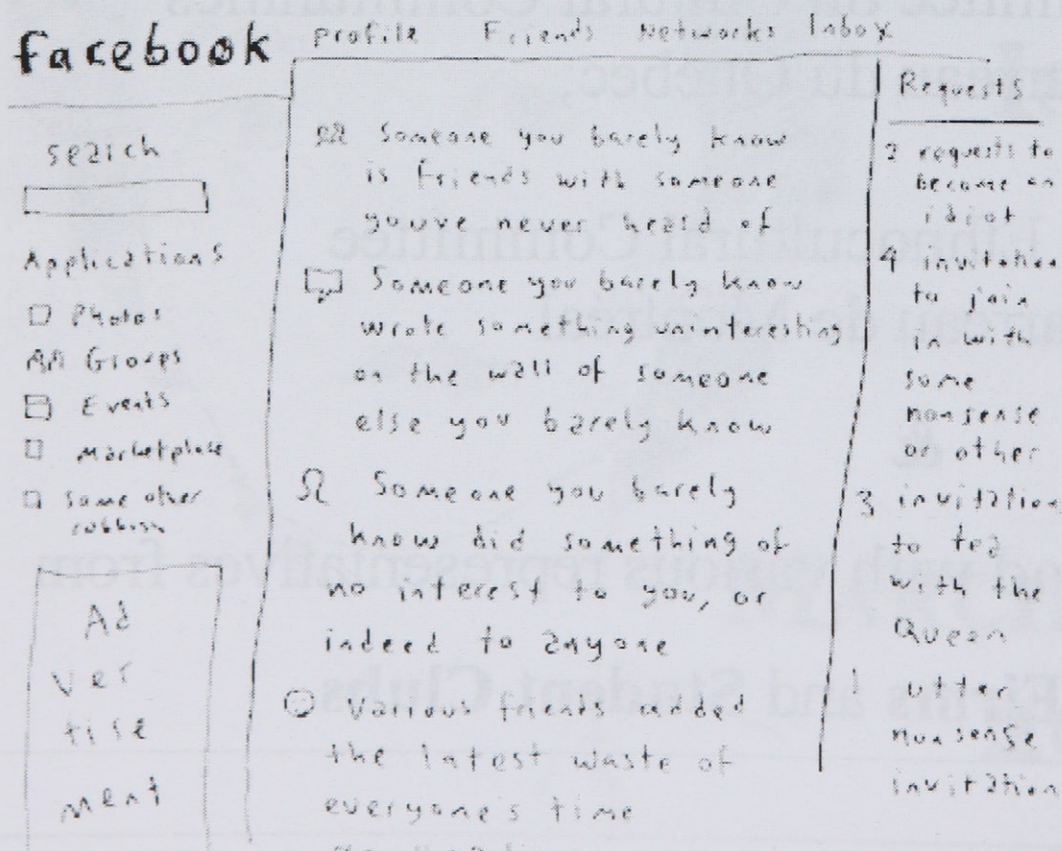 facebook
Profile Friends Networks Inbox
search
Applications
Photos
Groups
Events
Marketplace
Some other
rubbish
Ad
ver
tise
ment
Someone you barely know
is friends with someone
youve never heard of
Someone you barely know
wrote something uninteresting
on the wall of someone
else you barely know
Someone you barely
know did something of
no interest to you, or
indeed to anyone
Various friends added
the latest waste of
everyone's time
Requests
2 requests to
become an
idiot
4 invitation
to join
in with
some
nonsense
or other
3 invitation
to tea
with the
Queen
1 utter
nonsense
invitation